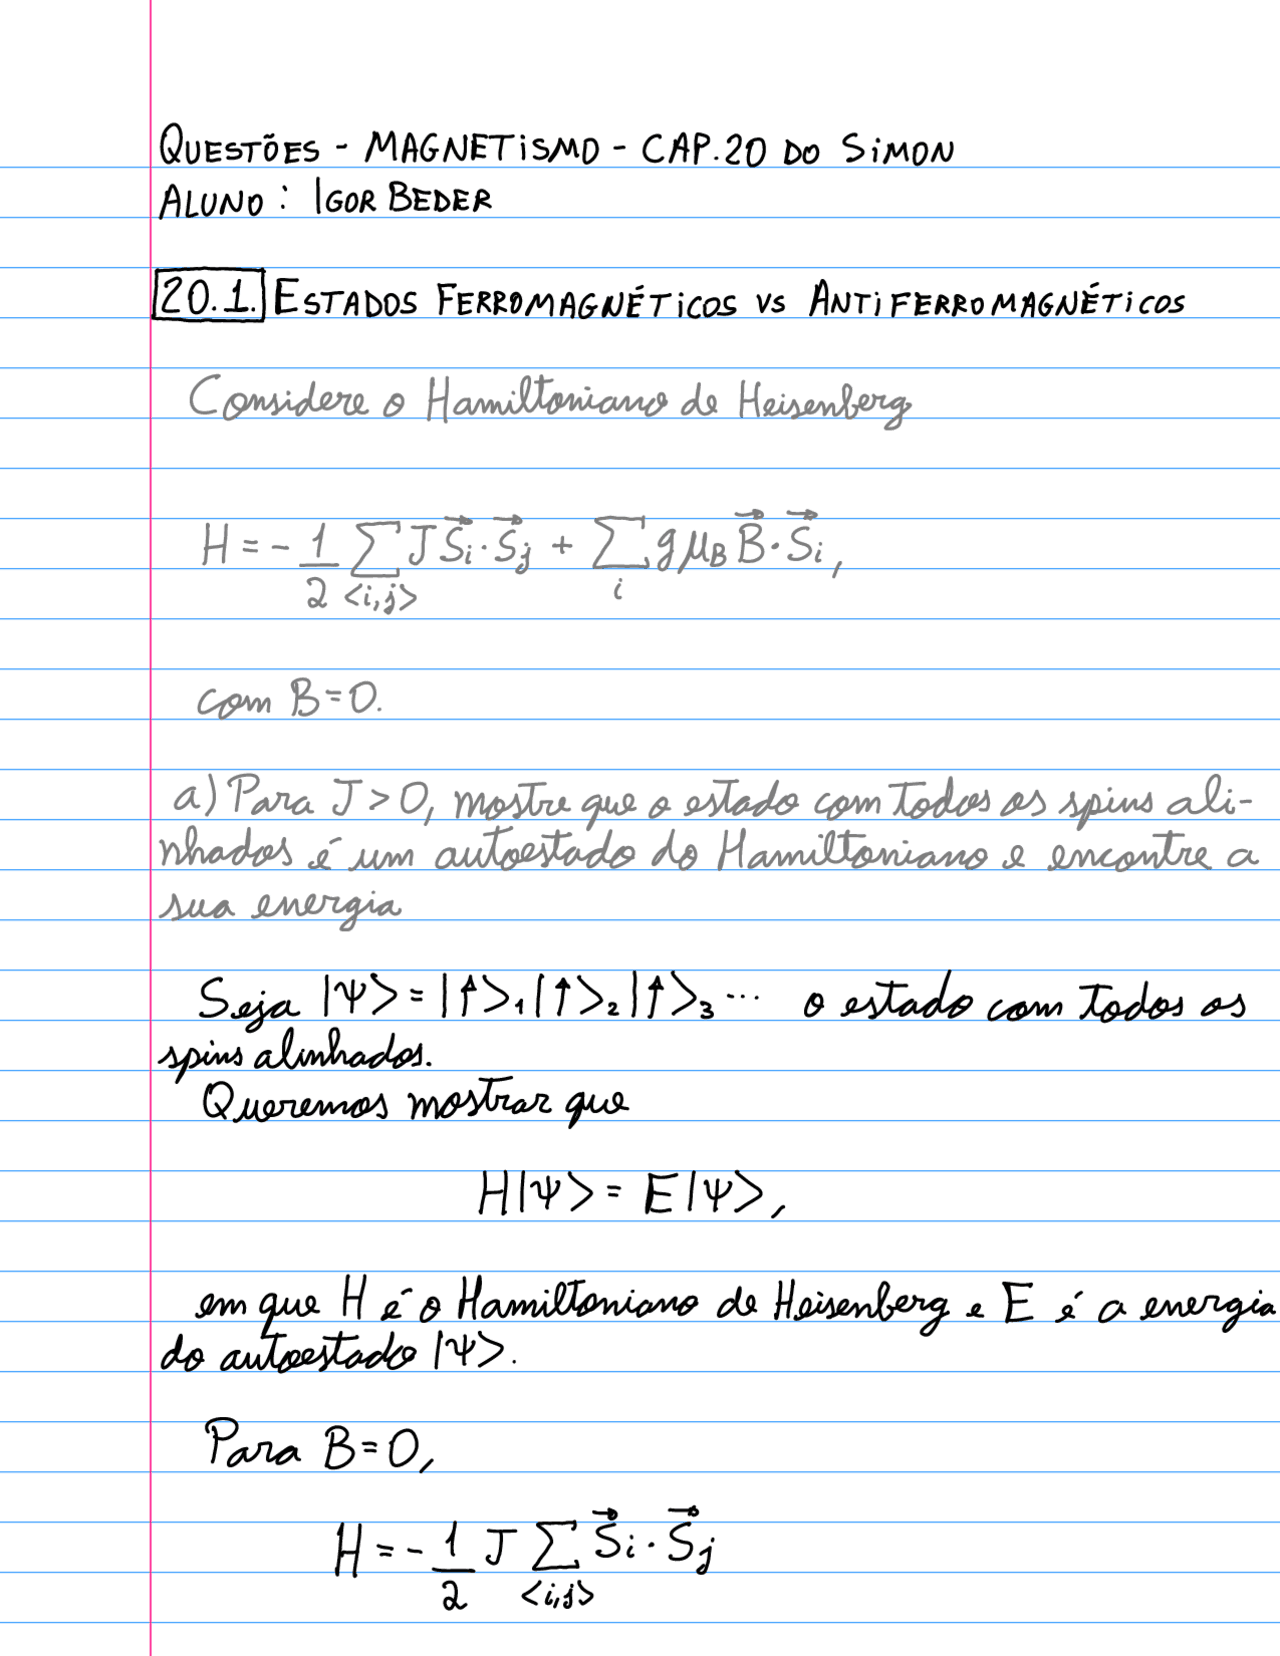 QUESTÕES - MAGNETISMO - CAP.20 DO SIMON
ALUNO: IGOR BEDER
20.1. ESTADOS FERROMAGNÉTICOS VS ANTIFERROMAGNÉTICOS
Considere o Hamiltoniano de Heisenberg
H = - 1/2 ∑_{<i,j>} J S⃗i · S⃗j + ∑_i g μB B⃗ · S⃗i,
com B=0.
a) Para J > 0, mostre que o estado com todos os spins ali-
nhados é um autoestado do Hamiltoniano e encontre a
sua energia
Seja |Ψ> = |↑>₁|↑>₂|↑>₃... o estado com todos os
spins alinhados.
Queremos mostrar que
H|Ψ> = E|Ψ>,
em que H é o Hamiltoniano de Heisenberg e E é a energia
do autoestado |Ψ>.
Para B=0,
H = - 1/2 J ∑_{<i,j>} S⃗i · S⃗j